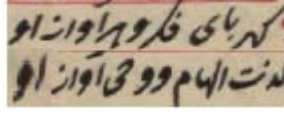 کهربای فکر و هر آواز او
لذت الهام و وحی آواز او